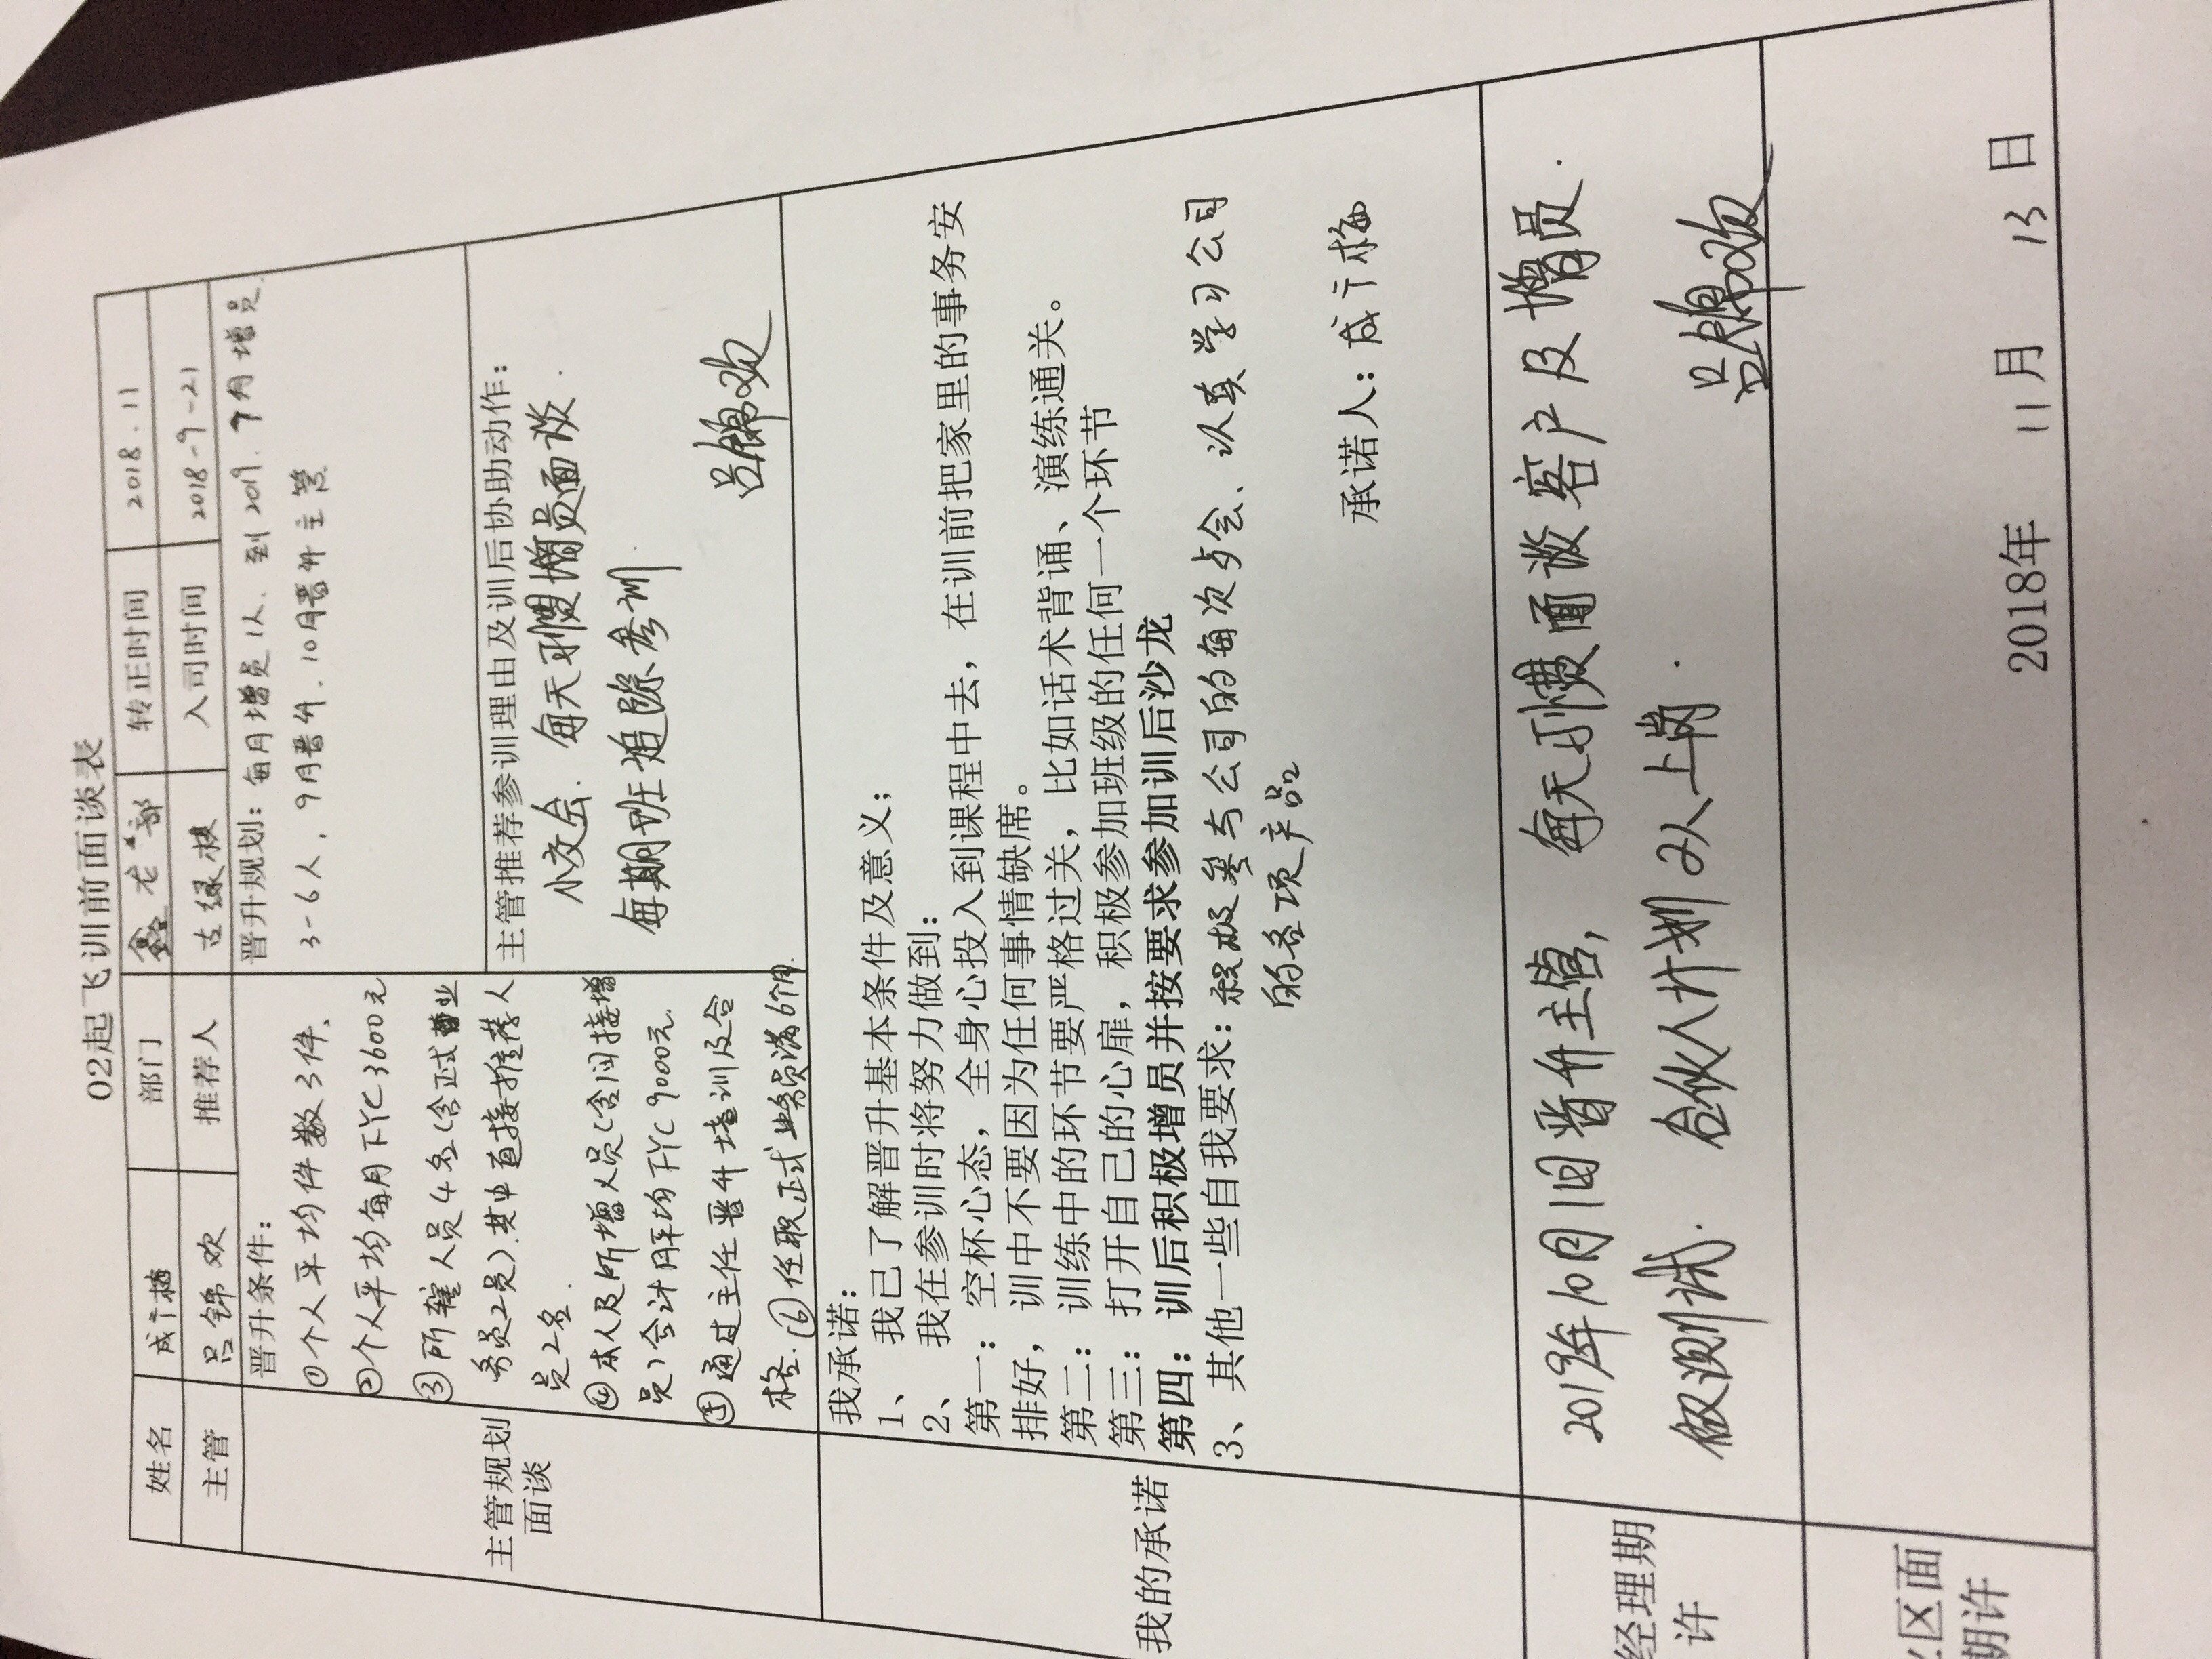 02起飞训前面谈表
姓名 成广梅 部门 鑫龙部 转正时间 2018.11
主管 吕锦欢 推荐人 古绿 入司时间 2018-9-21
主管规划
面谈
晋升条件:
①个人平均件数3件.
②个人平均每月FYC3600元
③所辖人员4名(含正式业
务员2员).其中直接推荐人
员2名.
④本人及所增人员(含间接增
员)合计月平均FYC9000元.
⑤通过主任晋升培训及合
格.⑥任职正式业务员满6个月.
晋升规划: 每月增员1人. 到2019.7月增员
3-6人, 9月晋升. 10月晋升主管
主管推荐参训理由及训后协助动作:
小交会. 每天增员面谈.
每期班追踪参训.
吕锦欢
我的承诺
我承诺:
1、 我已了解晋升基本条件及意义;
2、 我在参训时将努力做到:
第一: 空杯心态, 全身心投入到课程中去, 在训前把家里的事务安
排好, 训中不要因为任何事情缺席。
第二: 训练中的环节要严格过关, 比如话术背诵、演练通关。
第三: 打开自己的心扉, 积极参加班级的任何一个环节
第四: 训后积极增员并按要求参加训后沙龙
3、其他一些自我要求: 积极参与公司的每次与会、认真学习公司
的各项产品
承诺人: 成广梅
经理期
许
2019年10月1日晋升主管, 每天面谈客户及增员.
做测试. 合伙人计划2人上岗.
吕锦欢
区面
期许
2018年 11月 13日